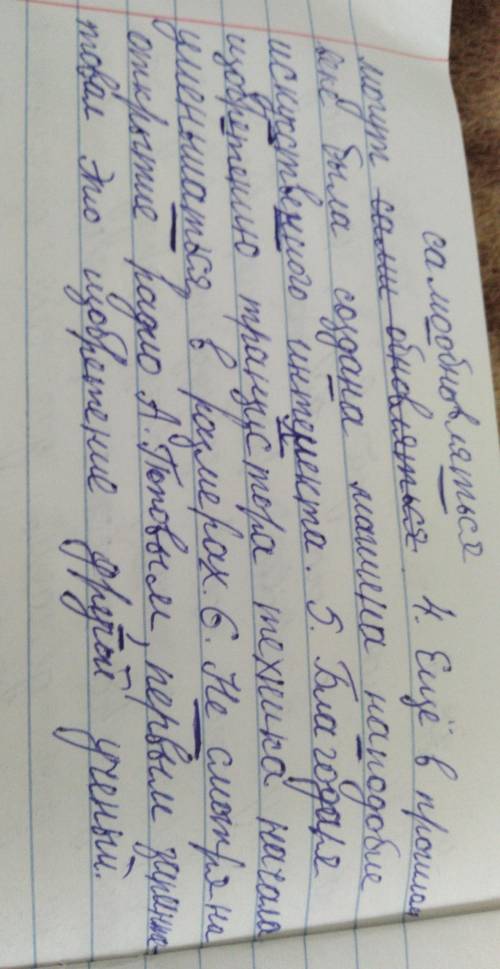 самообновляться
могут сами обновляться. 4. Ещё в прошлом
веке была создана машина наподобие
искуственного интелекта. 5. Благодаря
изобретению транзистора техника начала
уменьшаться в размерах. 6. Не смотря на
открытие радио А. Поповым, первым запатен-
товал это изобретение другой ученый.